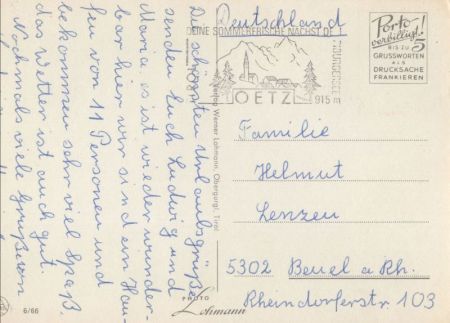 Die schönsten Urlaubsgrüße
senden Euch Ludwig und
Maria es ist wieder wunder-
bar hier wir sind ein Hau-
fen von 11 Personen und
bekommen sehr viel Spaß.
das Wetter ist auch gut.
Nochmals viele Grüße von
Deutschland
DEINE SOMMERFRISCHE NÄCHST D
OETZ
915 m
Porto-
verbilligt!
BIS ZU 5
GRUSSWORTEN
ALS
DRUCKSACHE
FRANKIEREN
Familie
Helmut
Lenzen
5302 Beuel a Rh.
Rheindorferstr. 103
Werner Lohmann, Obergurgl, Tirol
PHOTO
Lohmann
6/66